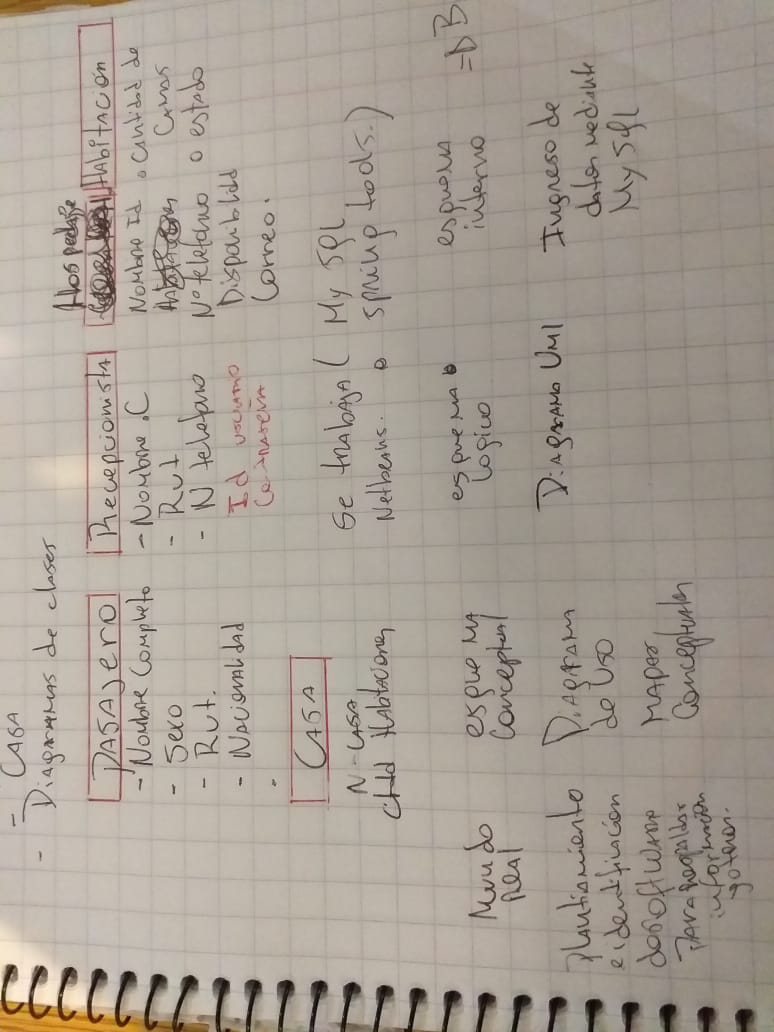 - CASA
- Diagramas de clases
PASAJERO
- Nombre Completo
- Sexo
- Rut.
- Nacionalidad
Recepcionista
- Nombre .C
- Rut
- N telefono
Id usuario
Contraseña
Hospedaje
Nombre Id
Nº telefono
Disponibilidad
Correo.
Habitación
o cantidad de
camas
o estado
CASA
N-CASA
Habitaciones
Se trabaja ( My SQL
Netbeans. o spring tools.)
Mundo
Real
esquema
Conceptual
esquema
Logico
esquema
interno
=DB
plantiamiento
e identificación
de software
para
información
Diagrama
de Uso
MAPAS
Conceptuales
Diagrama UMl
Ingreso de
datos mediante
My SQL